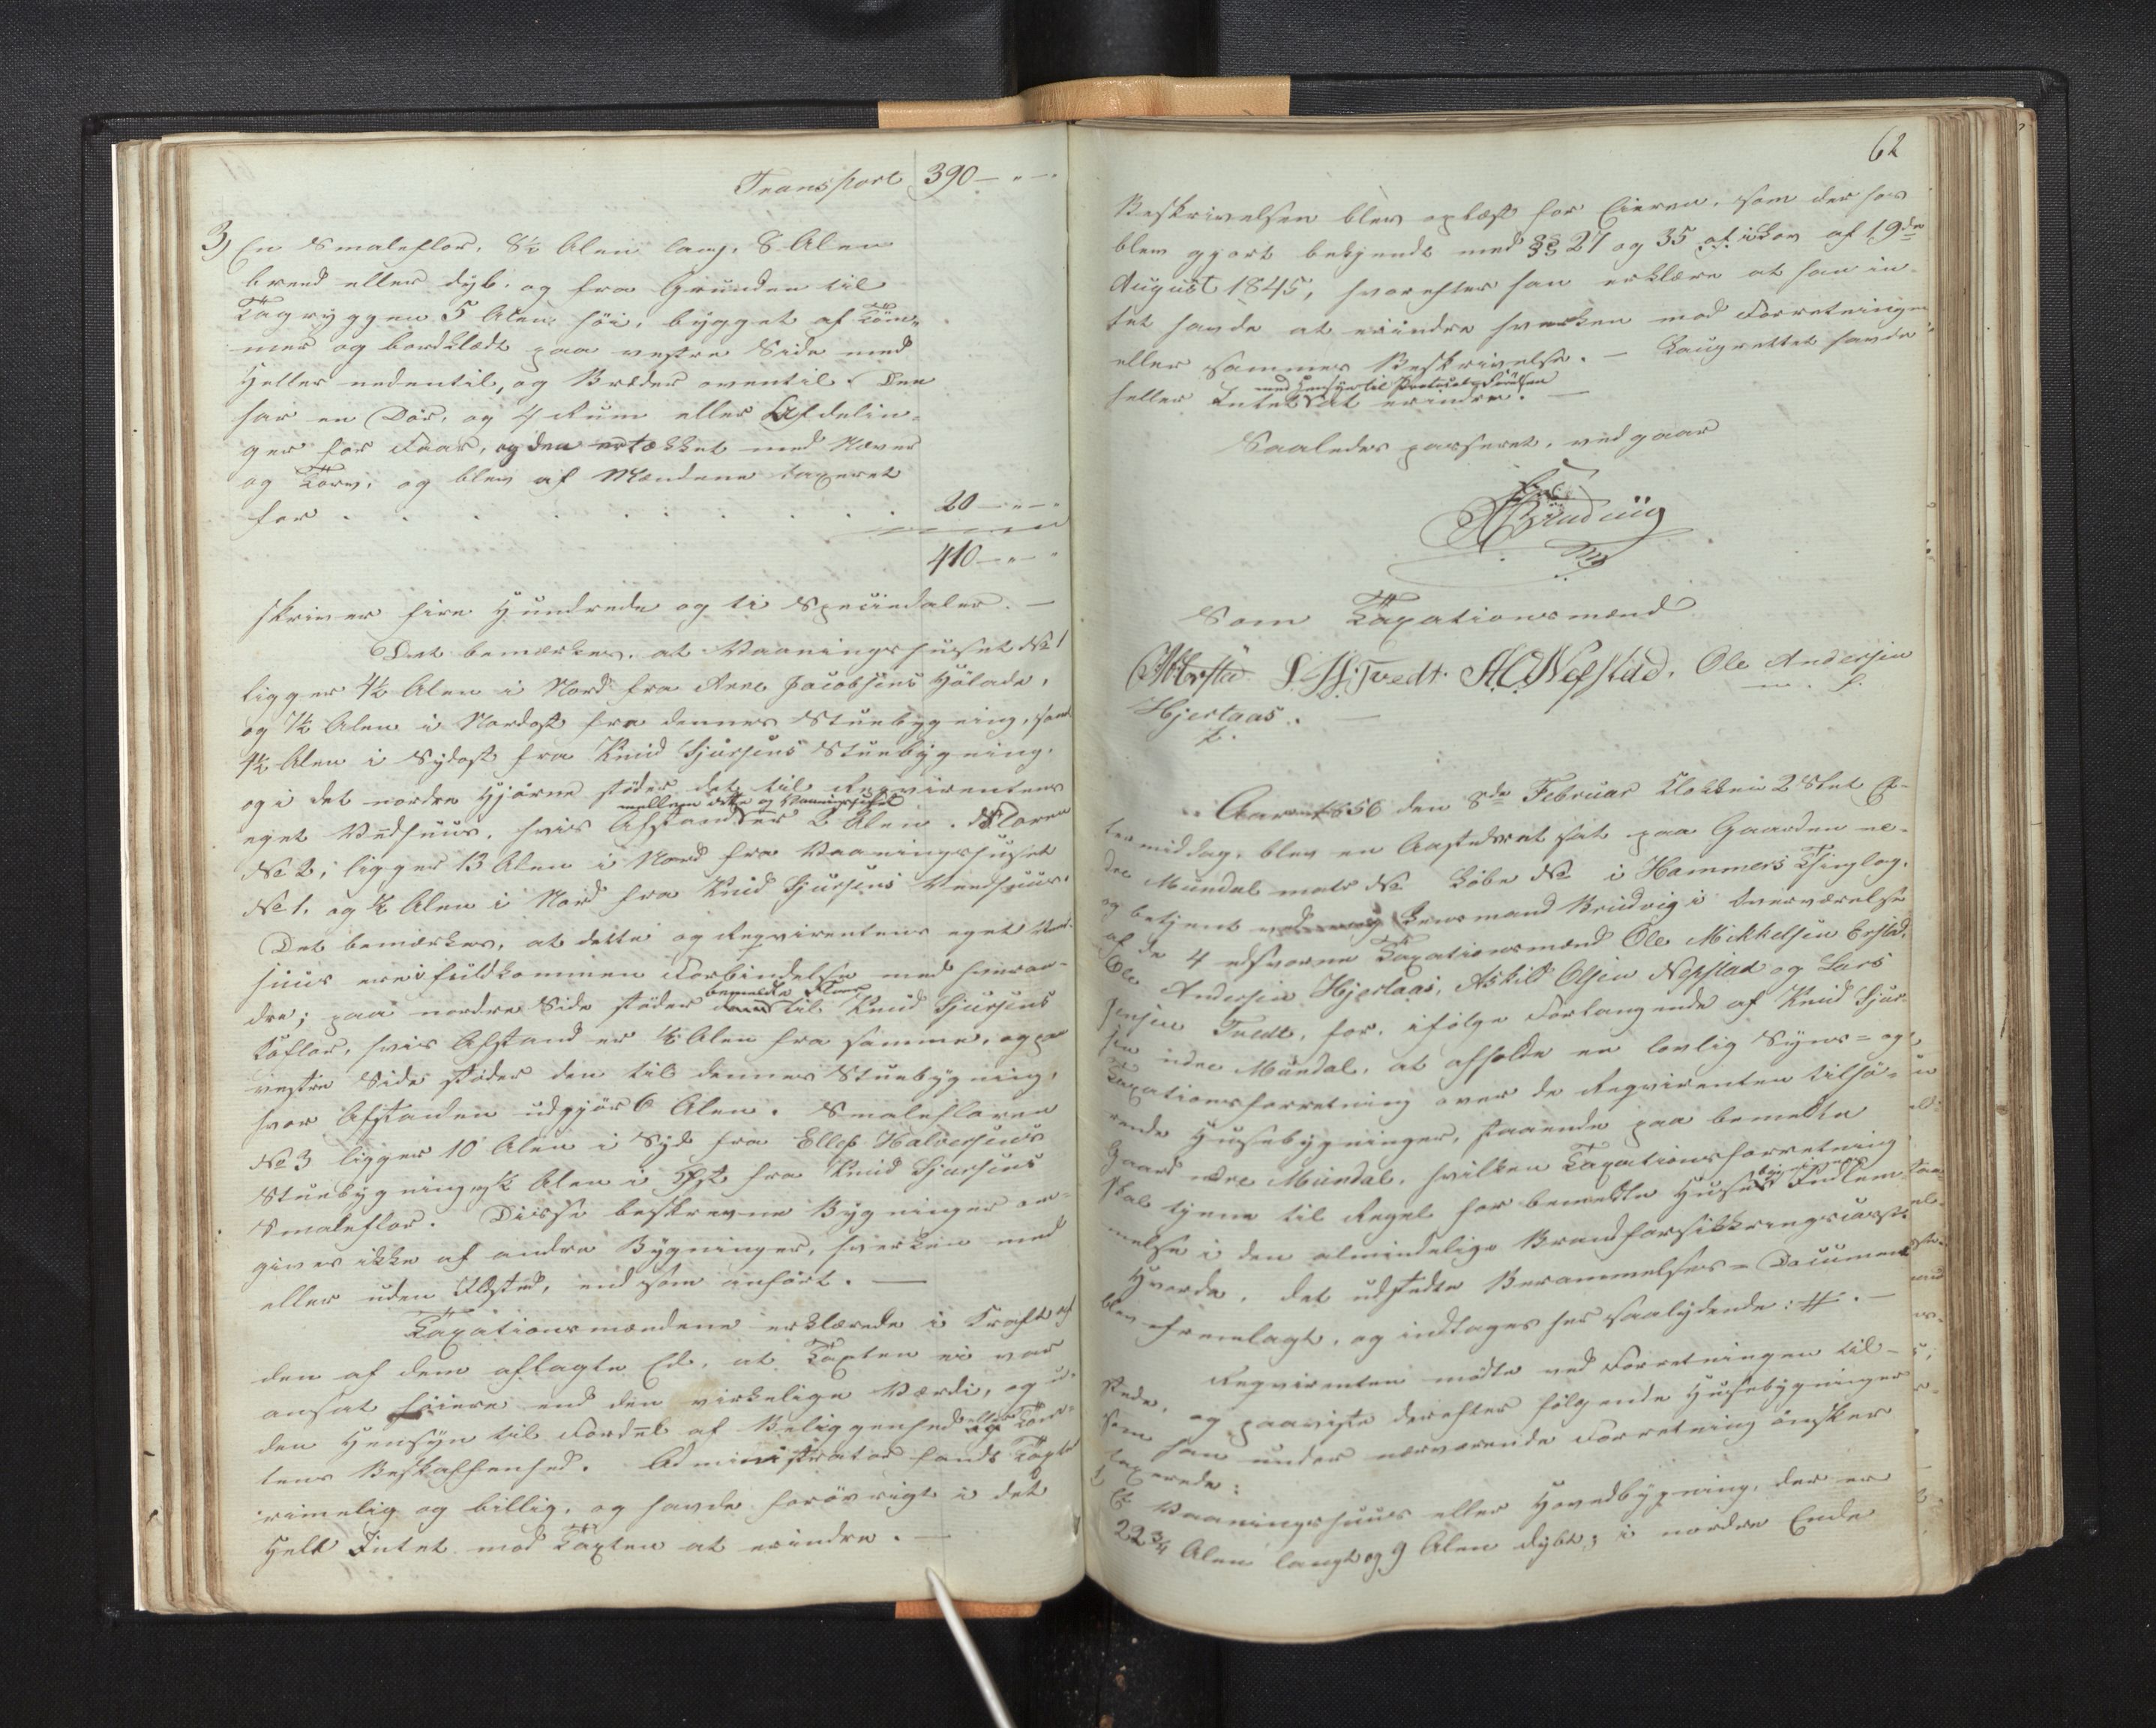 Transport 390 — " —
3) En Smaleflor, 8½ Alen lang, 8 Alen
breed eller dyb, og fra Grunden til
Tagryggen 5 Alen høi, bygget af Tøm-
mer og bordklædt paa vestre Side med
Heller nedentil, og Bræder oventil. Den
har en Dør, og 4 Rum eller Afdelin-
ger for Faar, og den er tækket med Næver
og Torv, og blev af Mændene taxeret
for . . . . . . . . . 20 — " —
410 — " —
skriver fire Hundrede og ti Speciedaler. —
Det bemærkes, at Vaaningshuset No 1
ligger 4½ Alen i Nord fra Anne Jacobsens Hølade,
og ½ Alen i Nordost fra dennes Stuebygning, samt
4½ Alen i Sydost fra Knud Sjursens Stuebygning,
og i det nordre Hjørne støder det til Reqvirentens
eget Vedhuus, hvis Afstand mellem dette og Vaaningshuset er 2 Alen. Floren
No 2, ligger 13 Alen i Nord fra Vaaningshuset
No 1, og ½ Alen i Nord fra Knud Sjursens Veedhuus.
Det bemærkes, at dette og Reqvirentens eget Ved-
huus ere i fuldkommen Forbindelse med hveran-
dre; paa nordre Side støder bemeldte Floer til Knud Sjursens
Køflor, hvis Afstand er ½ Alen fra samme, og paa
vestre Side støder den til dennes Stuebygning,
hvor Afstanden udgjør 6 Alen. Smalefloren
No 3 ligger 10 Alen i Syd fra Ellef Halversens
Stuebygning og ½ Alen i Øst fra Knud Sjursens
Smaleflor. Disse beskrevne Bygninger om-
gives ikke af andre Bygninger, hverken med
eller uden Ildsted, end som anført. —
Taxationsmændene erklærede i Kraft af
den af dem aflagte Ed, at Taxten ei var
ansat høiere end den virkelige Værdi, og u-
den Hensyn til Fordel af Beliggenhed eller Tom-
tens Beskaffenhed. Administrator fandt Taxten
rimelig og billig, og havde forøvrigt i det
Hele Intet mod Taxten at erindre. —
62
Beskrivelsen blev oplæst for Eieren, som derhos
blev gjort bekjendt med §§ 27 og 35 af Lov af 19de
August 1845, hvorefter han erklære at han in-
tet havde at erindre hverken mod Forretningen
eller sammes Beskrivelse. — Laugrettet havde
heller Intet med Hensyn til Protocolsførelsen at erindre. —
Saaledes passeret, vedgaar
Brudvig
Som Taxationsmænd
O M Erstad L J Tvedt. A O Nepstad. Ole Andersen
m. p.
Hjertaas.
Aaret 1856 den 8de Februar Klokken 2 Slet Ef-
termiddag, blev en Aastedsret sat paa Gaarden ne-
dre Mundal matr No Løbe No i Hammers Thinglag,
og betjent Lensmand Brudvig i Overværelse
af de 4 edsvorne Taxationsmænd Ole Mikkelsen Erstad,
Ole Andersen Hjertaas, Askild Olsen Nepstad og Lars
Jensen Tvedt, for, ifølge Forlangende af Knud Sjur-
sen nedre Mundal, at afholde en lovlig Syns- og
Taxationsforretning over de Reqvirenten tilhø-
rende Husebygninger, staaende paa bemeldte
Gaard nedre Mundal, hvilken Taxationsforretning
skal tjene til Regel for bemeldte Husebygningers Indlem-
melse i den almindelige Brandforsikkringscasse.
Hvorda, det udstedte Berammelses-Document
blev fremlagt, og indtages her saalydende: #. —
Reqvirenten mødte ved Forretningen til-
stede, og paaviste derefter følgende Husebygninger
som han under nærværende Forretning ønsker
taxerede:
1) Et Vaaningshuus eller Hovedbygning, der er
22¾ Alen langt og 9 Alen dybt; i nordre Ende